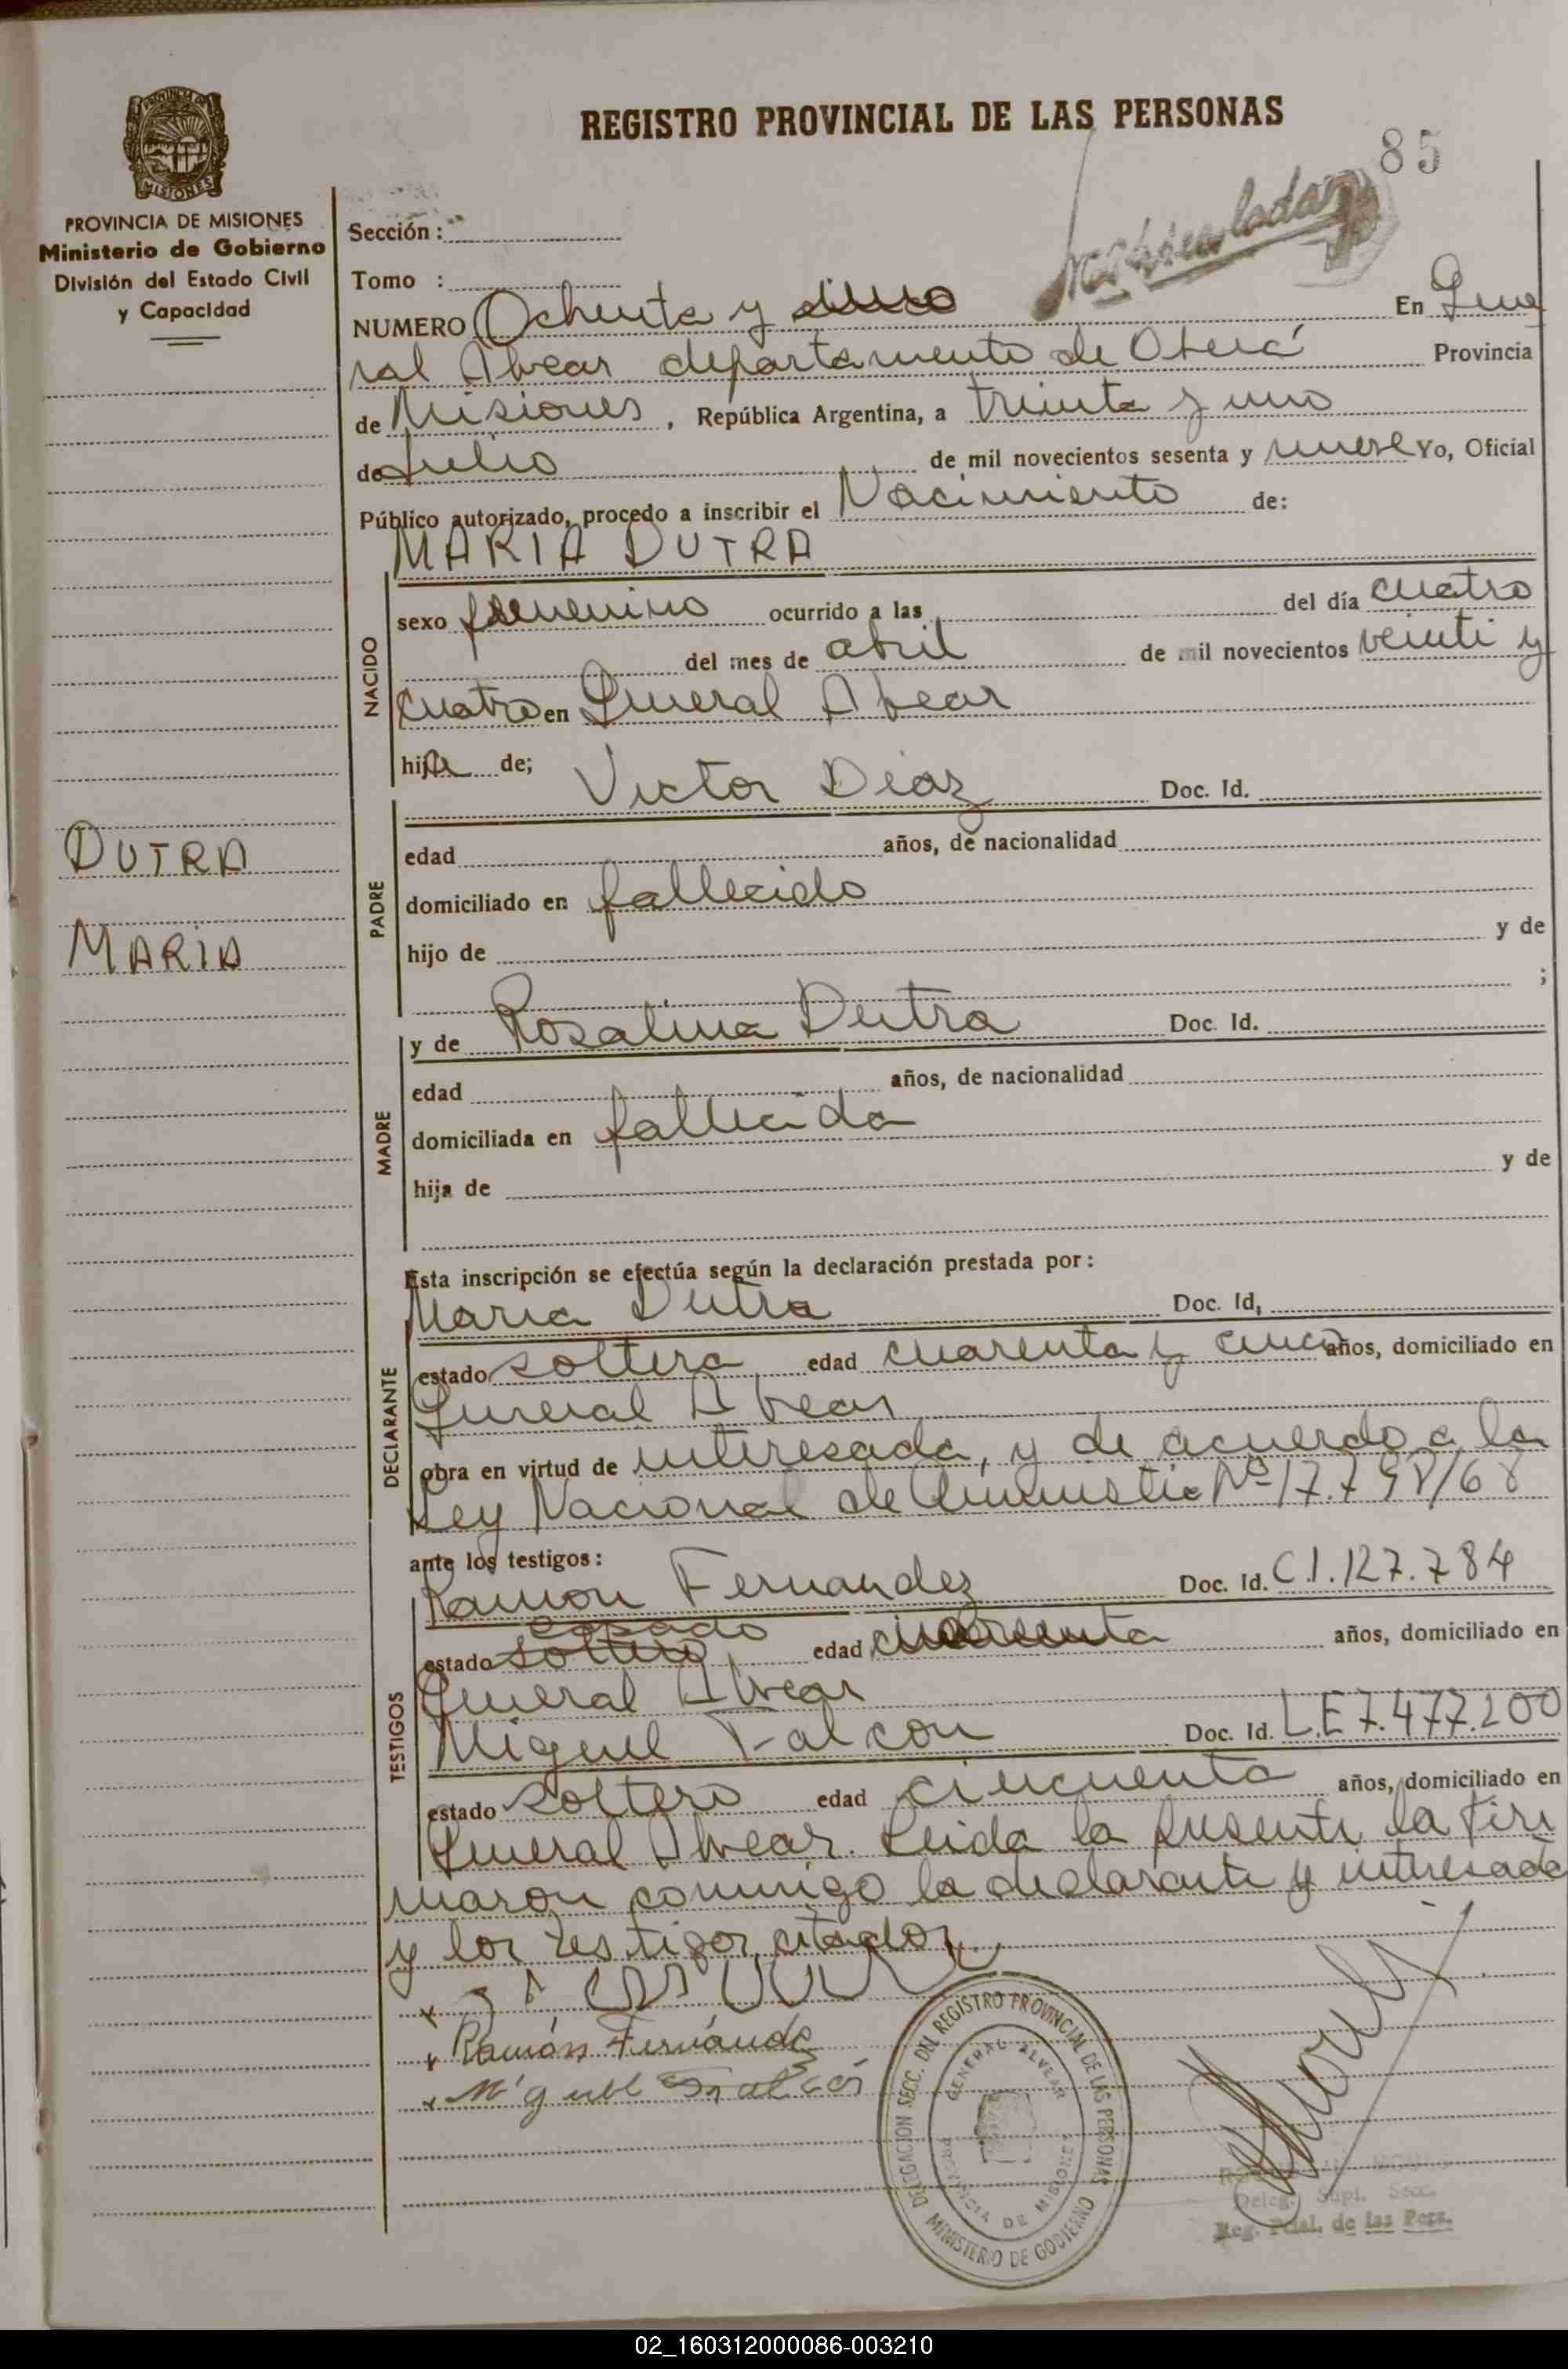 REGISTRO PROVINCIAL DE LAS PERSONAS
85
PROVINCIA DE MISIONES
MISIONES
PROVINCIA DE MISIONES
Ministerio de Gobierno
División del Estado Civil
y Capacidad
DUTRA
MARIA
Sección :
Tomo :
NUMERO Ochenta y cinco En Gene
ral Alvear departamento de Oberá Provincia
de Misiones, República Argentina, a treinta y uno
de Julio de mil novecientos sesenta y nueve Yo, Oficial
Público autorizado, procedo a inscribir el Nacimiento de:
MARIA DUTRA
NACIDO
sexo femenino ocurrido a las del día cuatro
del mes de abril de mil novecientos veinti y
cuatro en General Alvear
hija de;
Victor Diaz Doc. Id.
PADRE
edad años, de nacionalidad
domiciliado en fallecido
hijo de y de
;
y de Rosalina Dutra Doc. Id.
MADRE
edad años, de nacionalidad
domiciliada en fallecida
hija de y de
Esta inscripción se efectúa según la declaración prestada por :
Maria Dutra Doc. Id,
DECLARANTE
estado soltera edad cuarenta y cinco años, domiciliado en
General Alvear
obra en virtud de interesada, y de acuerdo a la
Ley Nacional de Amnistia Nº 17.798/68
ante los testigos :
Ramon Fernandez Doc. Id. C.I.127.784
TESTIGOS
casado
estado soltero edad años, domiciliado en
General Alvear
Miguel Falcon Doc. Id. L.E 7.477.200
estado soltero edad cincuenta años, domiciliado en
General Alvear. Leida la presente la fir
maron conmigo la declarante y interesada
y los testigos citados
Ramón Fernandez
Miguel Falcon
DELEGACION SECC. DEL REGISTRO PROVINCIAL DE LAS PERSONAS
GENERAL ALVEAR
PROVINCIA DE MISIONES
MINISTERIO DE GOBIERNO
Deleg. Supl. Secc.
Reg. Pcial. de las Pers.
02_160312000086-003210